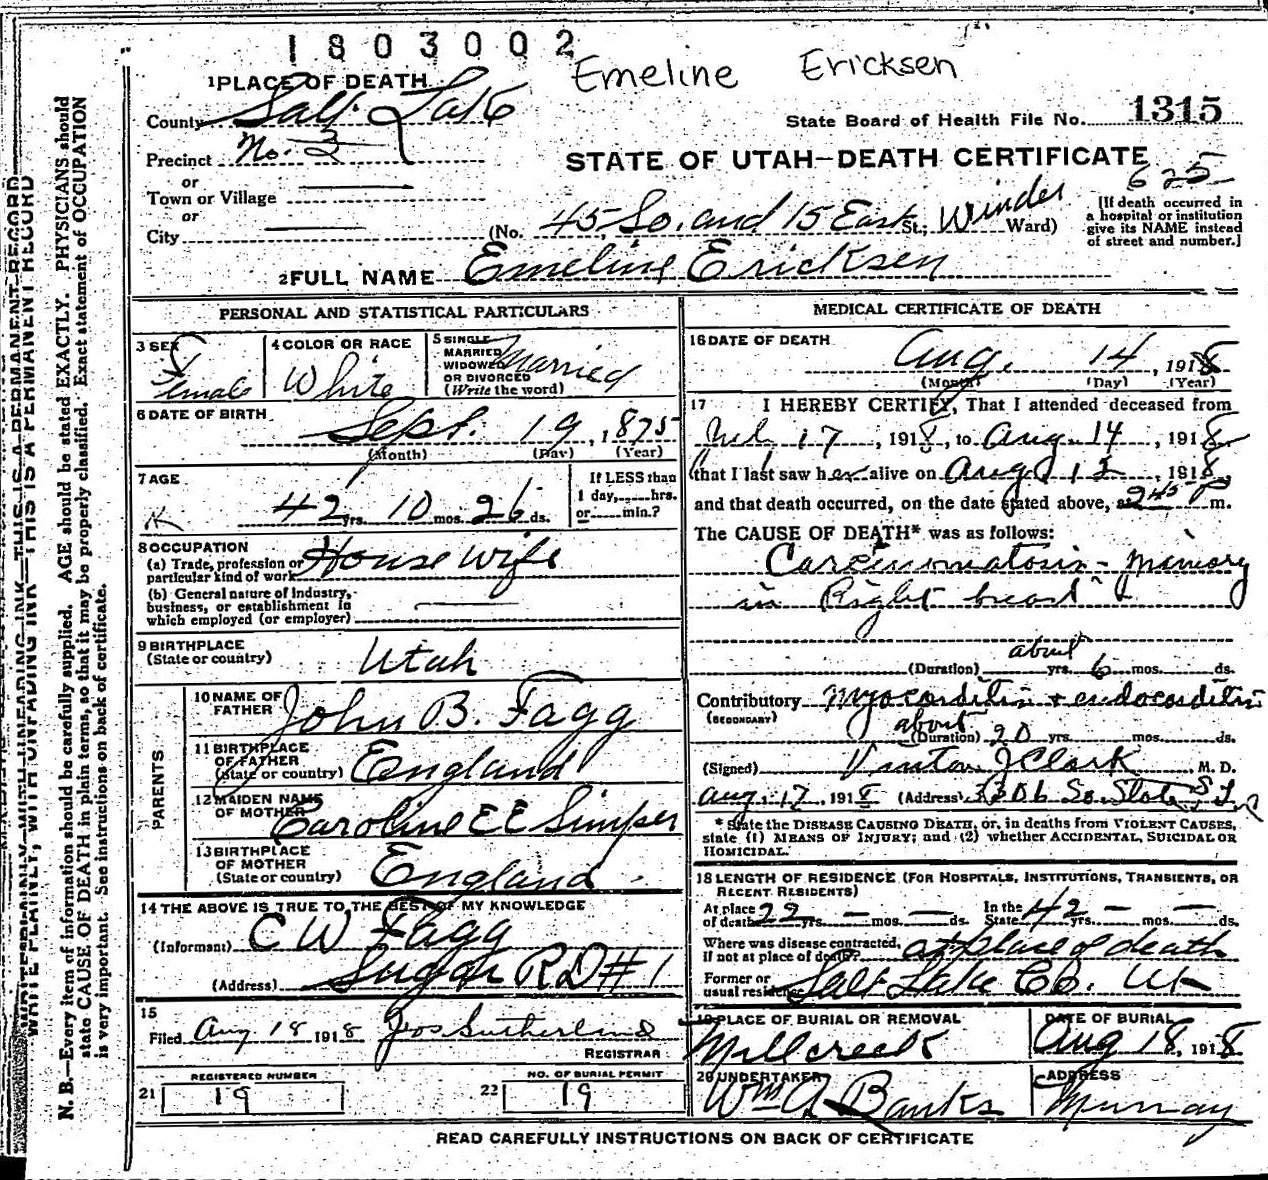 1803002
Emeline Ericksen
1 PLACE OF DEATH
County Salt Lake
State Board of Health File No. 1315
Precinct No. 3
STATE OF UTAH—DEATH CERTIFICATE
or
625
Town or Village
or
City
(No. 45 So. and 15 East St.; Winder Ward)
[If death occurred in a hospital or institution give its NAME instead of street and number.]
2 FULL NAME Emeline Ericksen
PERSONAL AND STATISTICAL PARTICULARS
3 SEX Female
4 COLOR OR RACE White
5 SINGLE MARRIED WIDOWED OR DIVORCED (Write the word) Married
6 DATE OF BIRTH Sept. 19, 1875
(Month) (Day) (Year)
7 AGE 42 yrs. 10 mos. 26 ds.
If LESS than 1 day, hrs. or min.?
8 OCCUPATION
(a) Trade, profession or particular kind of work House wife
(b) General nature of industry, business, or establishment in which employed (or employer)
9 BIRTHPLACE (State or country) Utah
PARENTS
10 NAME OF FATHER John B. Fagg
11 BIRTHPLACE OF FATHER (State or country) England
12 MAIDEN NAME OF MOTHER Caroline E E Simper
13 BIRTHPLACE OF MOTHER (State or country) England
14 THE ABOVE IS TRUE TO THE BEST OF MY KNOWLEDGE
(Informant) C W Fagg
(Address) Sugar RD #1
15
Filed Aug 18 1918 Jos Sutherland
REGISTRAR
21 REGISTERED NUMBER 19
22 NO. OF BURIAL PERMIT 19
MEDICAL CERTIFICATE OF DEATH
16 DATE OF DEATH Aug. 14, 1918
(Month) (Day) (Year)
17 I HEREBY CERTIFY, That I attended deceased from
17, 1918, to Aug. 14, 1918
that I last saw her alive on Aug 12, 1918,
and that death occurred, on the date stated above, at 245 P m.
The CAUSE OF DEATH* was as follows:
Carcinomatosis -
in Right breast
(Duration) about yrs. 6 mos. ds.
Contributory (SECONDARY) Myocarditis + endocarditis
(Duration) about 20 yrs. mos. ds.
(Signed) Vinton J Clark M. D.
Aug. 17, 1918 (Address) 3306 So. State S. L.
* State the DISEASE CAUSING DEATH, or, in deaths from VIOLENT CAUSES,
state (1) MEANS OF INJURY; and (2) whether ACCIDENTAL, SUICIDAL OR
HOMICIDAL.
18 LENGTH OF RESIDENCE (FOR HOSPITALS, INSTITUTIONS, TRANSIENTS, OR
RECENT RESIDENTS)
At place of death 22 yrs. — mos. — ds. In the State 42 yrs. — mos. — ds.
Where was disease contracted, if not at place of death? at place of death
Former or usual residence Salt Lake Co. Ut
19 PLACE OF BURIAL OR REMOVAL Millcreek
DATE OF BURIAL Aug 18, 1918
20 UNDERTAKER Wm A Banks
ADDRESS Murray
READ CAREFULLY INSTRUCTIONS ON BACK OF CERTIFICATE
WRITE PLAINLY, WITH UNFADING INK—THIS IS A PERMANENT RECORD
N. B.—Every item of information should be carefully supplied. AGE should be stated EXACTLY. PHYSICIANS should
state CAUSE OF DEATH in plain terms, so that it may be properly classified. Exact statement of OCCUPATION
is very important. See instructions on back of certificate.